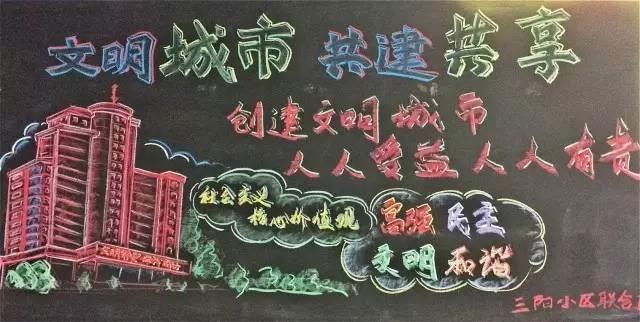 文明城市 共建共享
创建文明城市
人人受益人人有责
社会主义
核心价值观
富强民主
文明和谐
三阳小区联合